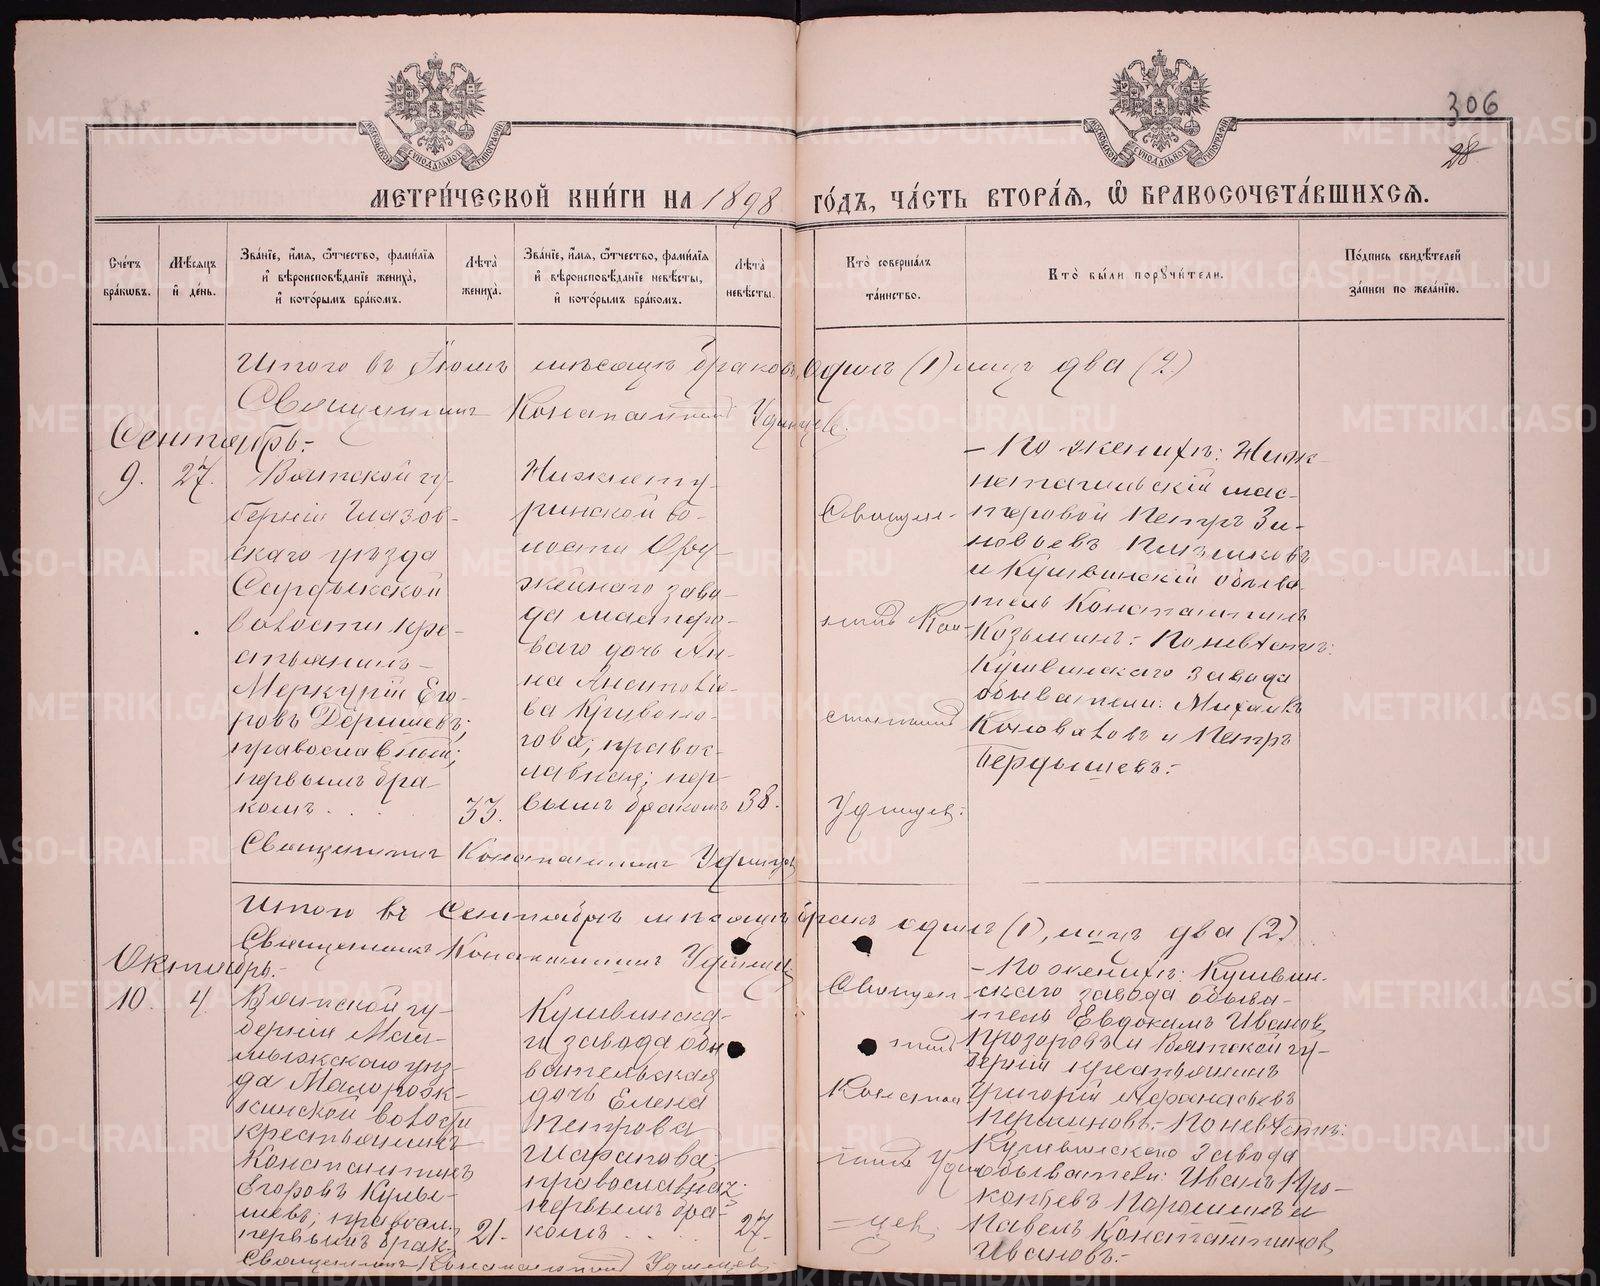 306
28
МЕТРИ́ЧЕСКОЙ КНИ́ГИ НА 1898 ГО́ДЪ, ЧА́СТЬ ВТОРА́Я, Ѿ БРАКОСОЧЕТА́ВШИХСЯ.
Сче́тъ бра́кѡвъ.
Мѣ́сяцъ и҆ де́нь.
Зва́нїе, и҆́мя, ѻ҆́тчество, фами́лїя и҆ вѣроисповѣ́данїе жениха̀, и҆ кото́рымъ бра́комъ.
Лѣта̀ жениха̀.
Зва́нїе, и҆́мя, ѻ҆́тчество, фами́лїя и҆ вѣроисповѣ́данїе невѣ́сты, и҆ кото́рымъ бра́комъ.
Лѣта̀ невѣ́сты.
Кто̀ соверша́лъ та́инство.
Кто̀ бы́ли порꙋчи́тели.
По́дпись свидѣ́телей за́писи по жела́нїю.
Итого въ Іюлѣ мѣсяцѣ браковъ одинъ (1) лицъ два (2)
Священникъ Константинъ Удинцев.
Сентябрь:-
9.
27.
Вятской гу-
берніи Глазов-
скаго уѣзда
Сардыкской
волости кре-
стьянинъ
Меркурій Его-
ровъ Деришевъ;
православный;
первымъ бра-
комъ . . .
33.
Нижнету-
ринской во-
лости Ору-
жейнаго заво-
да мастеро-
ваго дочь Ан-
на Антоніе-
ва Кривоно-
гова; правос-
лавная; пер-
вымъ бракомъ
38.
Священ-
никъ Кон-
стантинъ
Удинцев.
- По женихѣ: Ниж-
нетагильскій мас-
теровой Петръ Зи-
новьевъ
и Кушвинскій обыва-
тель Константинъ
Козьминъ: По невѣстѣ:
Кушвинскаго завода
обыватели: Михаилъ
Коновалов и Петръ
Бердышевъ.-
Священникъ Константинъ Удинцев
Итого въ Сентябрѣ мѣсяцѣ бракъ одинъ (1), лицъ два (2)
Священникъ Константинъ Удинцев
Октябрь.-
10.
4.
Вятской гу-
берніи Мал-
мыжскаго уѣз-
да Малорож-
кинской волости
крестьянинъ
Константинъ
Егоровъ Кулы-
шевъ; правосл.
первымъ брак-
21.
Кушвинска-
го завода обы-
вательская
дочь Елена
Петрова
Шарапова;
православная;
первымъ бра-
комъ . . .
27.
Священ
никъ
Констан
тинъ Удин
=цев.
- По женихѣ: Кушвин-
скаго завода обыва-
тель Евдокимъ Иванов
Прозоровъ и Вятской гу-
берніи крестьянинъ
Григорій Афанасьевъ
Першиновъ.- По невѣстѣ:
Кушвинскаго завода
обыватели: Иванъ Про-
копьевъ Паршинъ и
Павелъ Константинов
Ивановъ.-
Священникъ Константинъ Удинцевъ